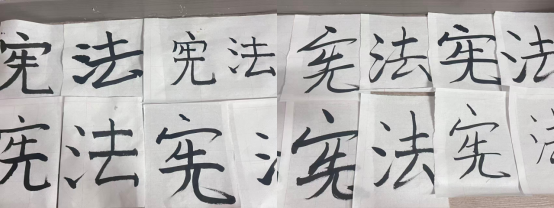 宪法宪法宪法宪法
宪法宪法宪法宪法